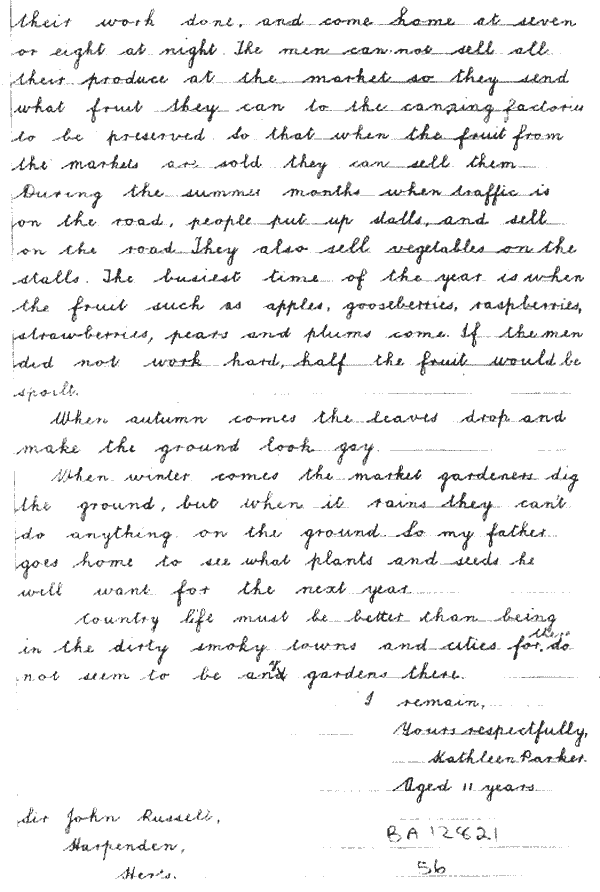 their work done, and come home at seven
or eight at night. The men can not sell all
their produce at the market so they send
what fruit they can to the canning factories
to be preserved so that when the fruit from
the markets are sold they can sell them
During the summer months when traffic is
on the road, people put up stalls, and sell
on the road They also sell vegetables on the
stalls. The busiest time of the year is when
the fruit such as apples, gooseberries, raspberries,
strawberries, pears and plums come. If the men
did not work hard, half the fruit would be
spoilt.
When autumn comes the leaves drop and
make the ground look gay.
When winter comes the market gardeners dig
the ground, but when it rains they can't
do anything on the ground So my father
goes home to see what plants and seeds he
will want for the next year
Country life must be better than being
in the dirty smoky towns and cities for there do
not seem to be any gardens there.
I remain,
Yours respectfully,
Kathleen Parker.
Aged 11 years
Sir John Russell,
Harpenden,
Herts.
BA 12821
56